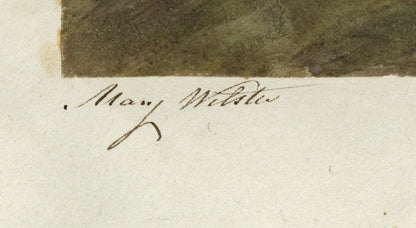 Mary Webster